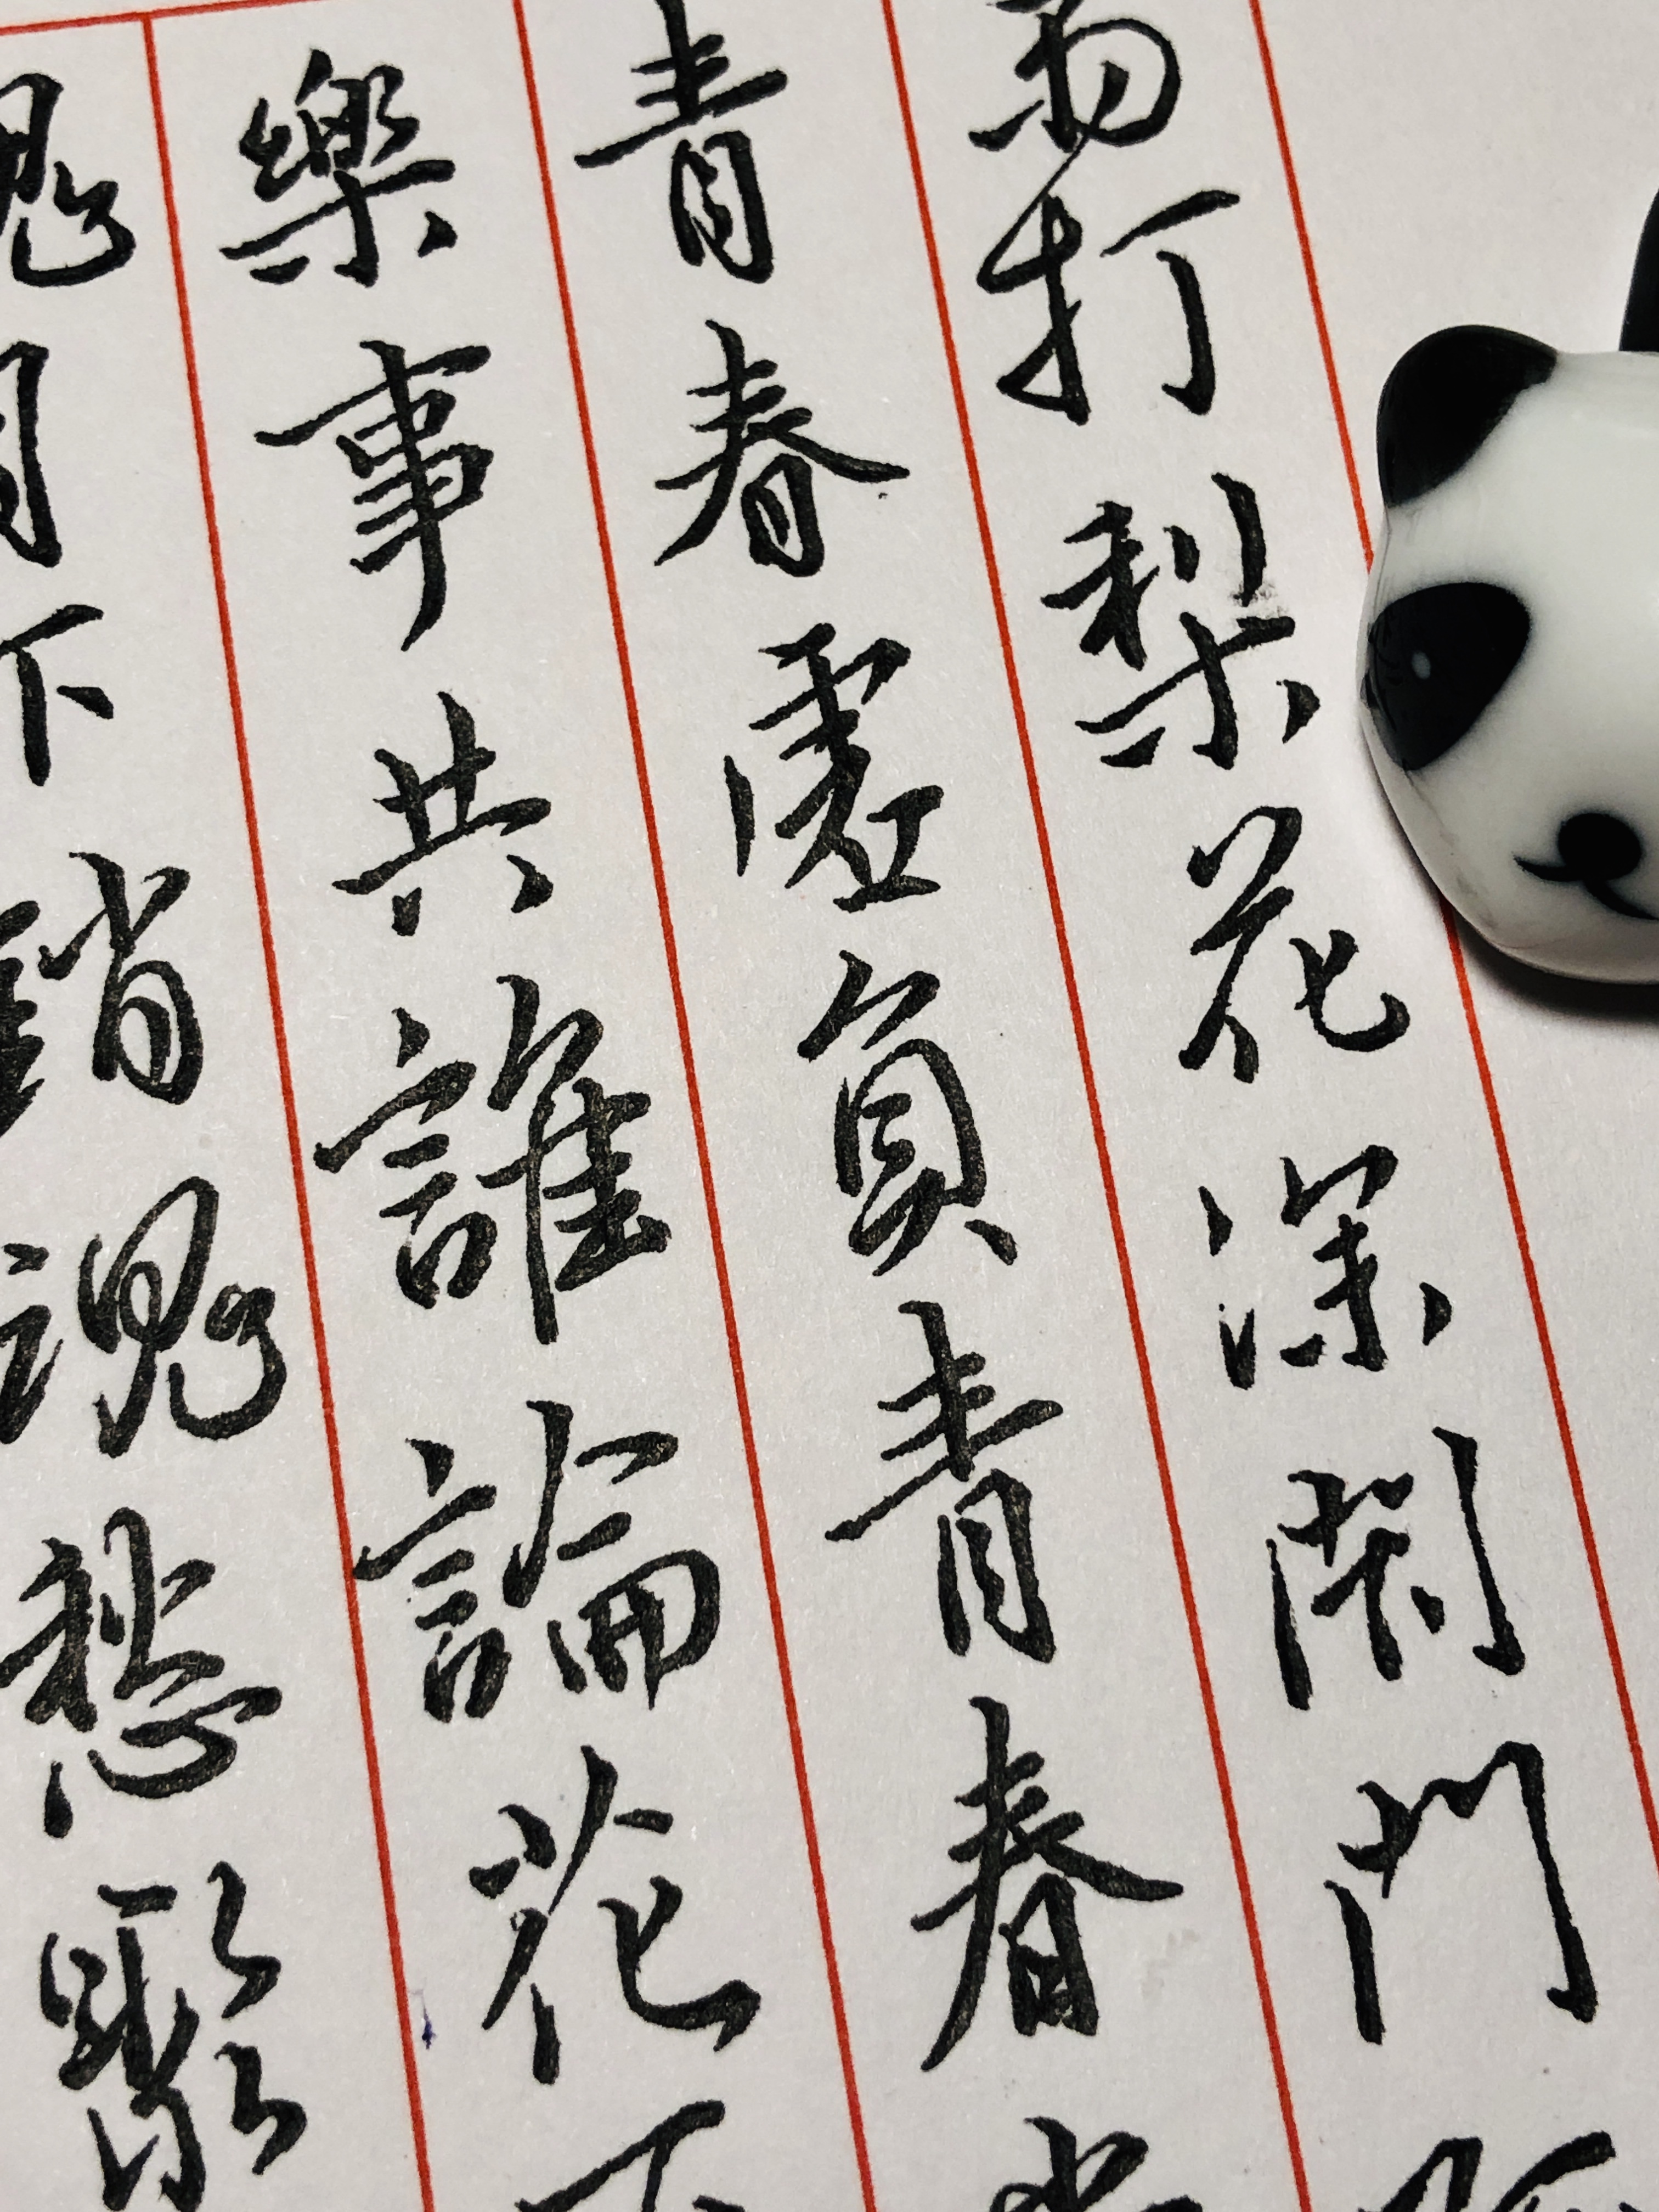 雨打梨花深閉門
青春虛負青春
樂事共誰論花下
魂月下銷魂愁聚